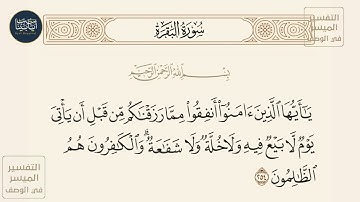 سُورَةُ البَقَرَةِ
التفسير
الميسر
في الوصف
بِسْمِ اللَّهِ الرَّحْمَٰنِ الرَّحِيمِ
يَٰٓأَيُّهَا ٱلَّذِينَ ءَامَنُوٓا۟ أَنفِقُوا۟ مِمَّا رَزَقْنَٰكُم مِّن قَبْلِ أَن يَأْتِىَ
يَوْمٌ لَّا بَيْعٌ فِيهِ وَلَا خُلَّةٌ وَلَا شَفَٰعَةٌ ۗ وَٱلْكَٰفِرُونَ هُمُ
ٱلظَّٰلِمُونَ ٢٥٤
التفسير
الميسر
في الوصف